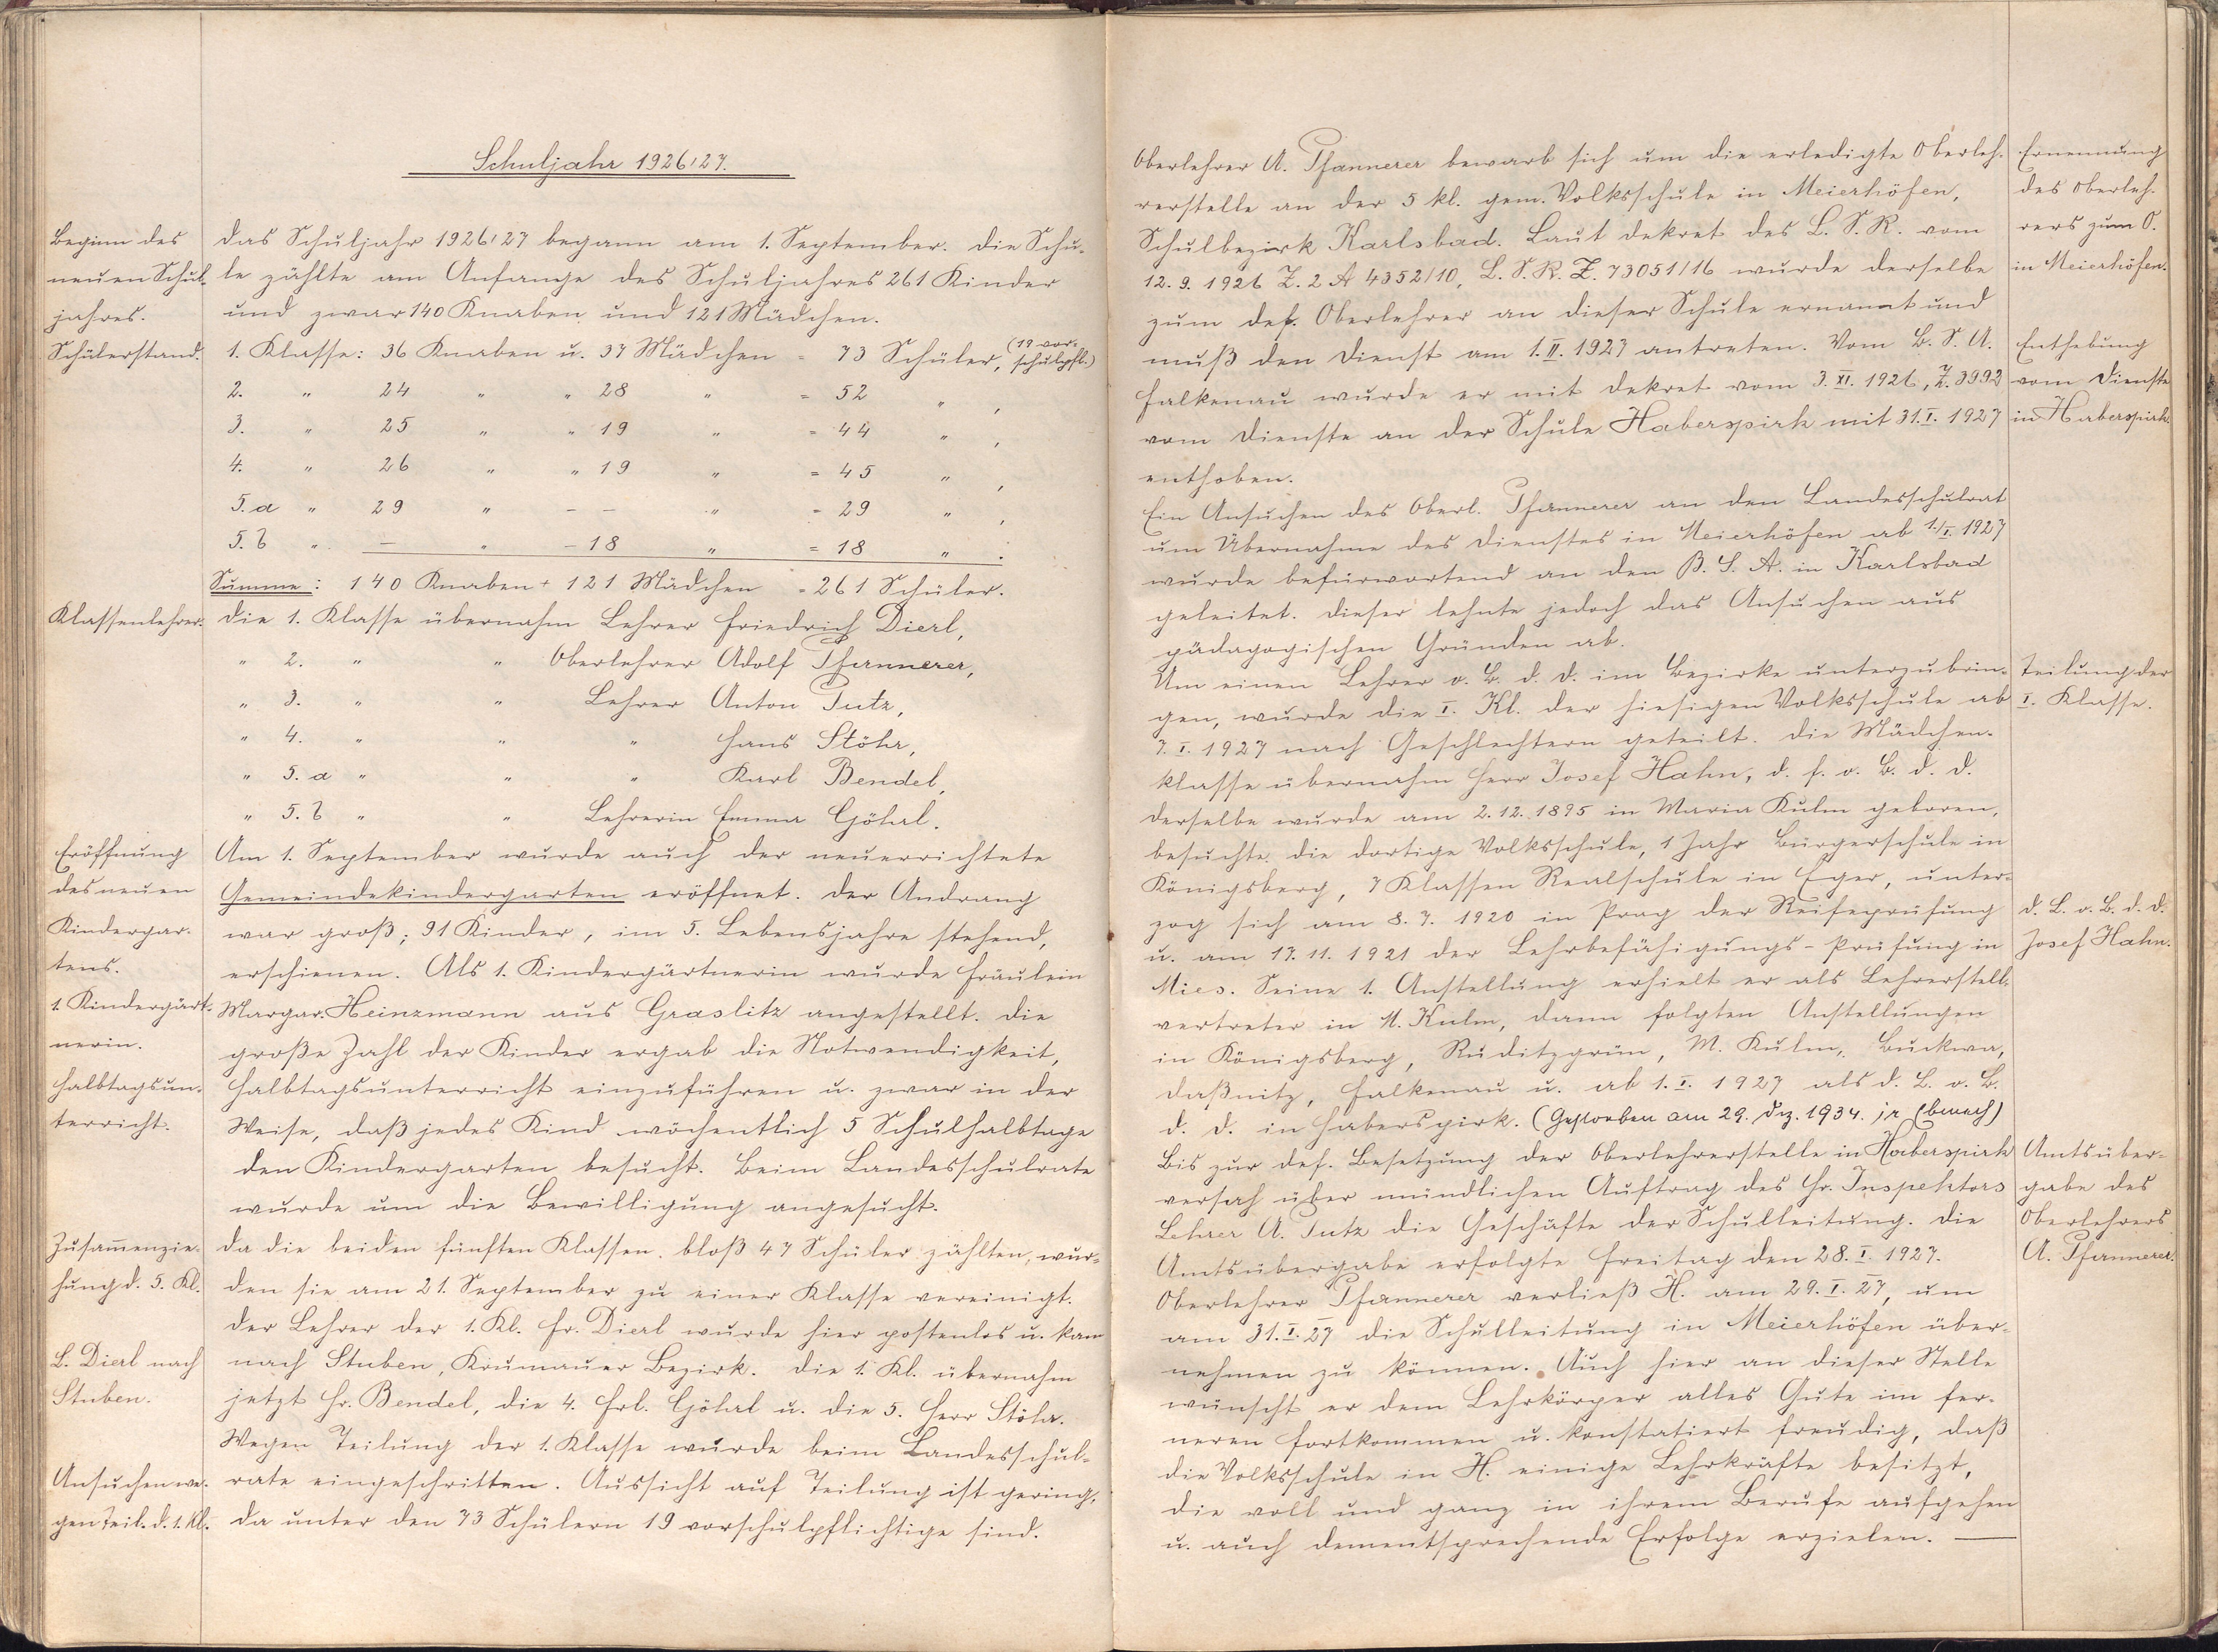 Schuljahr 1926/27.
Beginn des
neuen Schul-
jahres.
Das Schuljahr 1926/27 begann am 1. September. Die Schu-
le zählte am Anfange des Schuljahres 261 Kinder
und zwar 140 Knaben und 121 Mädchen.
Schülerstand.
1. Klasse: 36 Knaben u. 37 Mädchen = 73 Schüler, (19 vor-
schulpfl.)
2. " 24 " " 28 " = 52 " ,
3. " 25 " " 19 " = 44 " ,
4. " 26 " " 19 " = 45 " ,
5. a " 29 " – – " = 29 " ,
5. b " — " – 18 " = 18 " .
Summe: 140 Knaben + 121 Mädchen = 261 Schüler.
Klassenlehrer.
Die 1. Klasse übernahm Lehrer Friedrich Dierl,
" 2. " " Oberlehrer Adolf Pfannerer,
" 3. " " Lehrer Anton Tutz,
" 4. " " " Hans Stöhr,
" 5. a " " " Karl Bendel,
" 5. b " " Lehrerin Emma Göhrl.
Eröffnung
des neuen
Kindergar-
tens.
1. Kindergärt-
nerin.
Halbtagsun-
terricht.
Am 1. September wurde auch der neuerrichtete
Gemeindekindergarten eröffnet. Der Andrang
war groß; 91 Kinder, im 5. Lebensjahre stehend,
erschienen. Als 1. Kindergärtnerin wurde Fräulein
Margar. Heinzmann aus Graslitz angestellt. Die
große Zahl der Kinder ergab die Notwendigkeit,
Halbtagsunterricht einzuführen u. zwar in der
Weise, daß jedes Kind wöchentlich 5 Schulhalbtage
den Kindergarten besucht. Beim Landesschulrate
wurde um die Bewilligung angesucht.
Zusam̅enzie-
hung d. 5. Kl.
Da die beiden fünften Klassen bloß 47 Schüler zählten, wur-
den sie am 21. September zu einer Klasse vereinigt.
Der Lehrer der 1. Kl. Hr. Dierl wurde hier postenlos u. kam
L. Dierl nach
Stuben.
nach Stuben, Krumauer Bezirk. Die 1. Kl. übernahm
jetzt Hr. Bendel, die 4. Frl. Göhrl u. die 5. Herr Stöhr.
Wegen Teilung der 1. Klasse wurde beim Landesschul-
Ansuchen we-
gen Teil. d. 1. Kl.
rate eingeschritten. Aussicht auf Teilung ist gering,
da unter den 73 Schülern 19 vorschulpflichtige sind.
Oberlehrer A. Pfannerer bewarb sich um die erledigte Oberleh-
rerstelle an der 5 kl. gem. Volksschule in Meierhöfen,
Schulbezirk Karlsbad. Laut Dekret des L. S. R. vom
12. 9. 1926 Z. 2 A 4352/10, L. S. R. Z. 73051/16 wurde derselbe
zum def. Oberlehrer an dieser Schule ernannt und
muß den Dienst am 1. II. 1927 antreten. Vom B. S. A.
Falkenau wurde er mit Dekret vom 3. XI. 1926, Z. 3992
vom Dienste an der Schule Haberspirk mit 31. I. 1927
enthoben.
Ernennung
des Oberleh-
rers zum O.
in Meierhöfen.
Enthebung
vom Dienste
in Haberspirk.
Ein Ansuchen des Oberl. Pfannerer an den Landesschulrat
um Übernahme des Dienstes in Meierhöfen ab 1./I. 1927
wurde befürwortend an den B. S. A. in Karlsbad
geleitet. Dieser lehnte jedoch das Ansuchen aus
pädagogischen Gründen ab.
Um einen Lehrer o. B. d. D. im Bezirke unterzubrin-
gen, wurde die I. Kl. der hiesigen Volksschule ab
7. I. 1927 nach Geschlechtern geteilt. Die Mädchen-
klasse übernahm Herr Josef Hahn, d. L. o. B. d. D.
Teilung der
I. Klasse.
Derselbe wurde am 2. 12. 1895 in Maria Kulm geboren,
besuchte die dortige Volksschule, 1 Jahr Bürgerschule in
Königsberg, 7 Klassen Realschule in Eger, unter-
zog sich am 8. 7. 1920 in Prag der Reifeprüfung
u. am 17. 11. 1921 der Lehrbefähigungs-Prüfung in
Mies. Seine 1. Anstellung erhielt er als Lehrerstell-
vertreter in M. Kulm, dann folgten Anstellungen
in Königsberg, Ruditzgrün, M. Kulm, Buckwa,
Daßnitz, Falkenau u. ab 1. I. 1927 als d. L. o. B.
d. D. in Haberspirk. (Gestorben am 29. Dez. 1934.
d. L. o. B. d. D.
Josef Hahn.
Bis zur def. Besetzung der Oberlehrerstelle in Haberspirk
versah über mündlichen Auftrag des Hr. Inspektors
Lehrer A. Tutz die Geschäfte der Schulleitung. Die
Amtsübergabe erfolgte Freitag den 28. I. 1927.
Oberlehrer Pfannerer verließ H. am 29. I. 27, um
am 31. I. 27 die Schulleitung in Meierhöfen über-
nehmen zu können. Auch hier an dieser Stelle
wünscht er dem Lehrkörper alles Gute im fer-
neren Fortkommen u. konstatiert freudig, daß
die Volksschule in H. einige Lehrkräfte besitzt,
die voll und ganz in ihrem Berufe aufgehen
u. auch dementsprechende Erfolge erzielen. —
Amtsüber-
gabe des
Oberlehrers
A. Pfannerer.